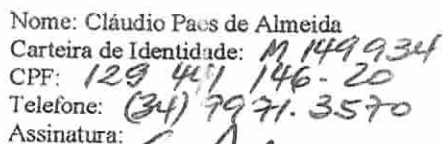 Nome: Cláudio Paes de Almeida
Carteira de Identidade: M 149 934
CPF: 129 441 146-20
Telefone: (34) 9971. 3570
Assinatura: